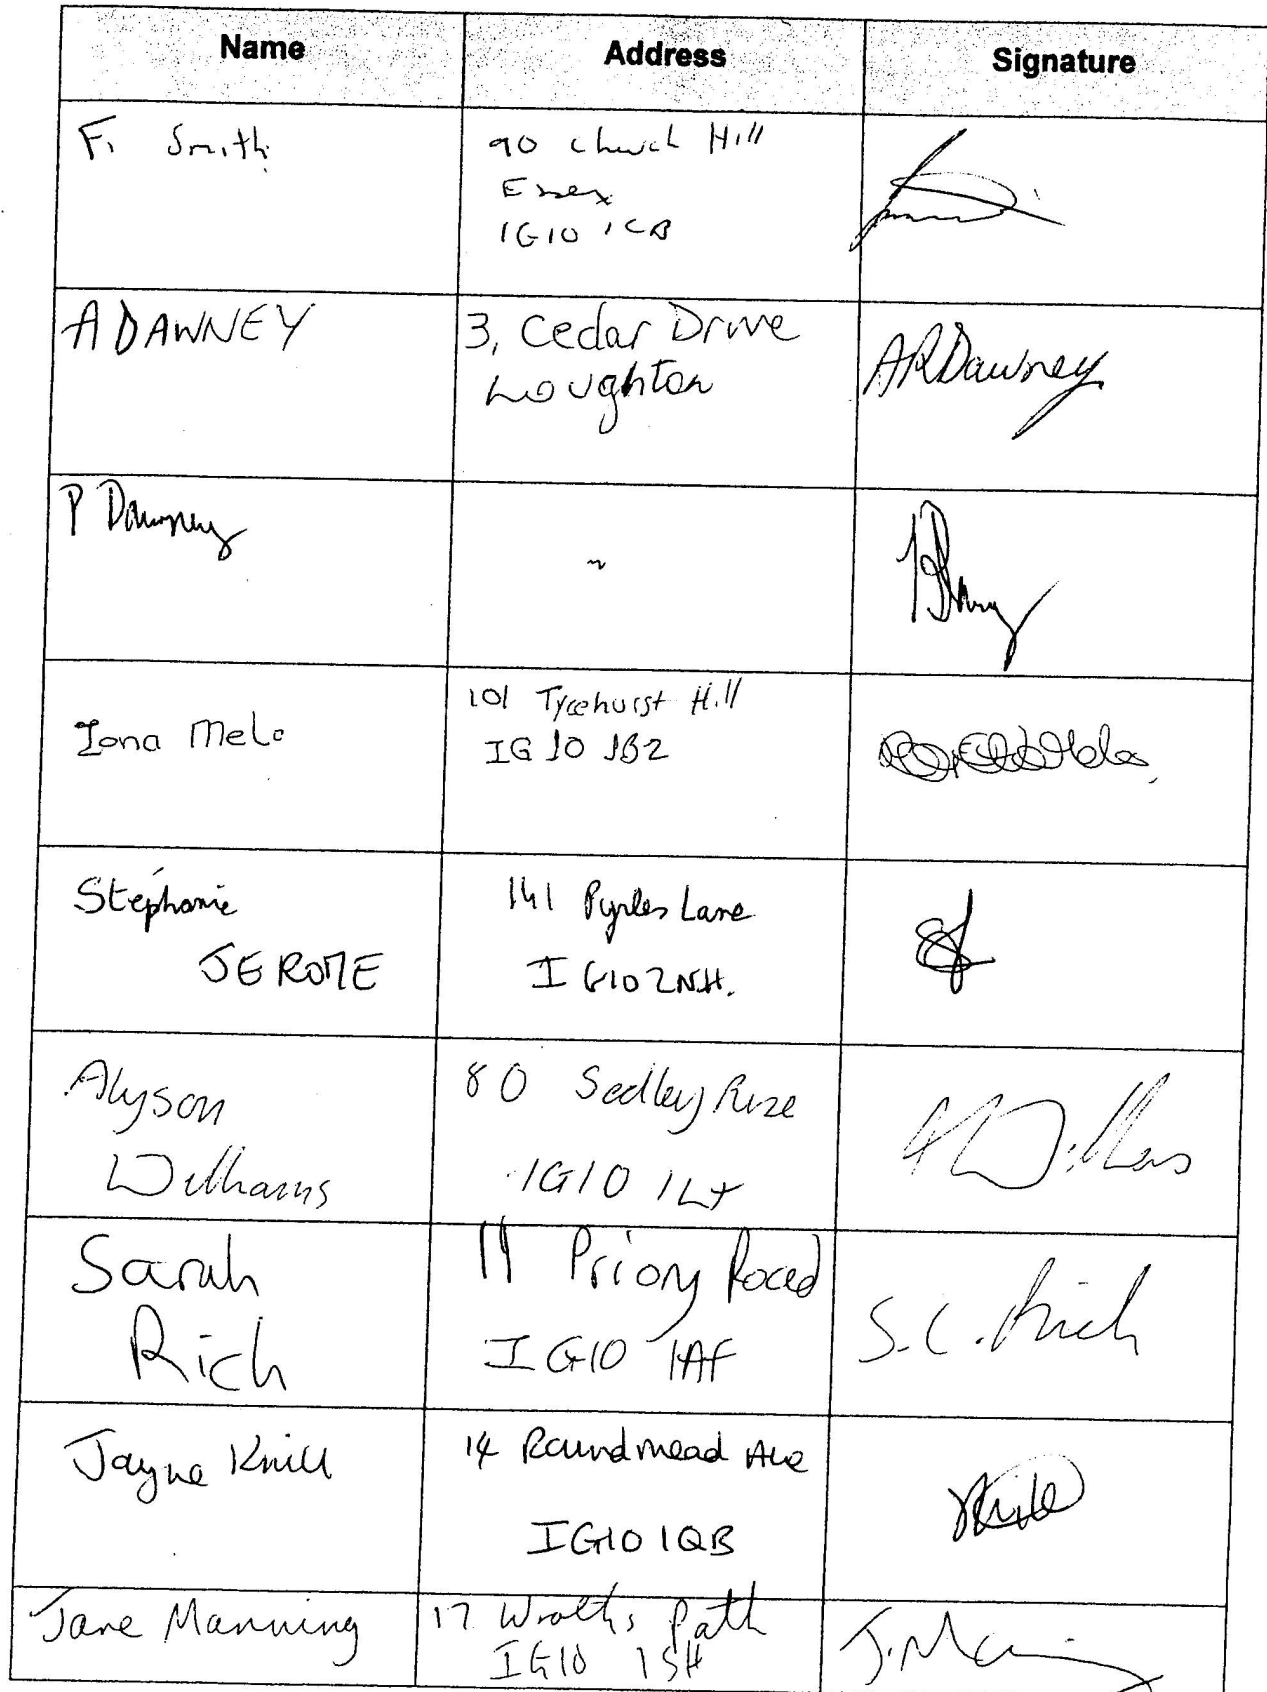 Name Address Signature
F. Smith
90 Church Hill
Essex
IG10 1CB
A DAWNEY
3, Cedar Drive
Loughton
ARDawney
P Dawney
"
Iona Melo
101 Tycehurst Hill
IG10 1BZ
Stephanie
JEROME
141 Pyrles Lane
IG10 2NH.
Alyson
Williams
80 Sedley Rise
IG10 1LT
A Williams
Sarah
Rich
11 Priory Road
IG10 1AF
S.C. Rich
Jayne Knill
14 Roundmead Ave
IG10 1QB
Jane Manning
17 Wroths Path
IG10 1SH
J. Manning